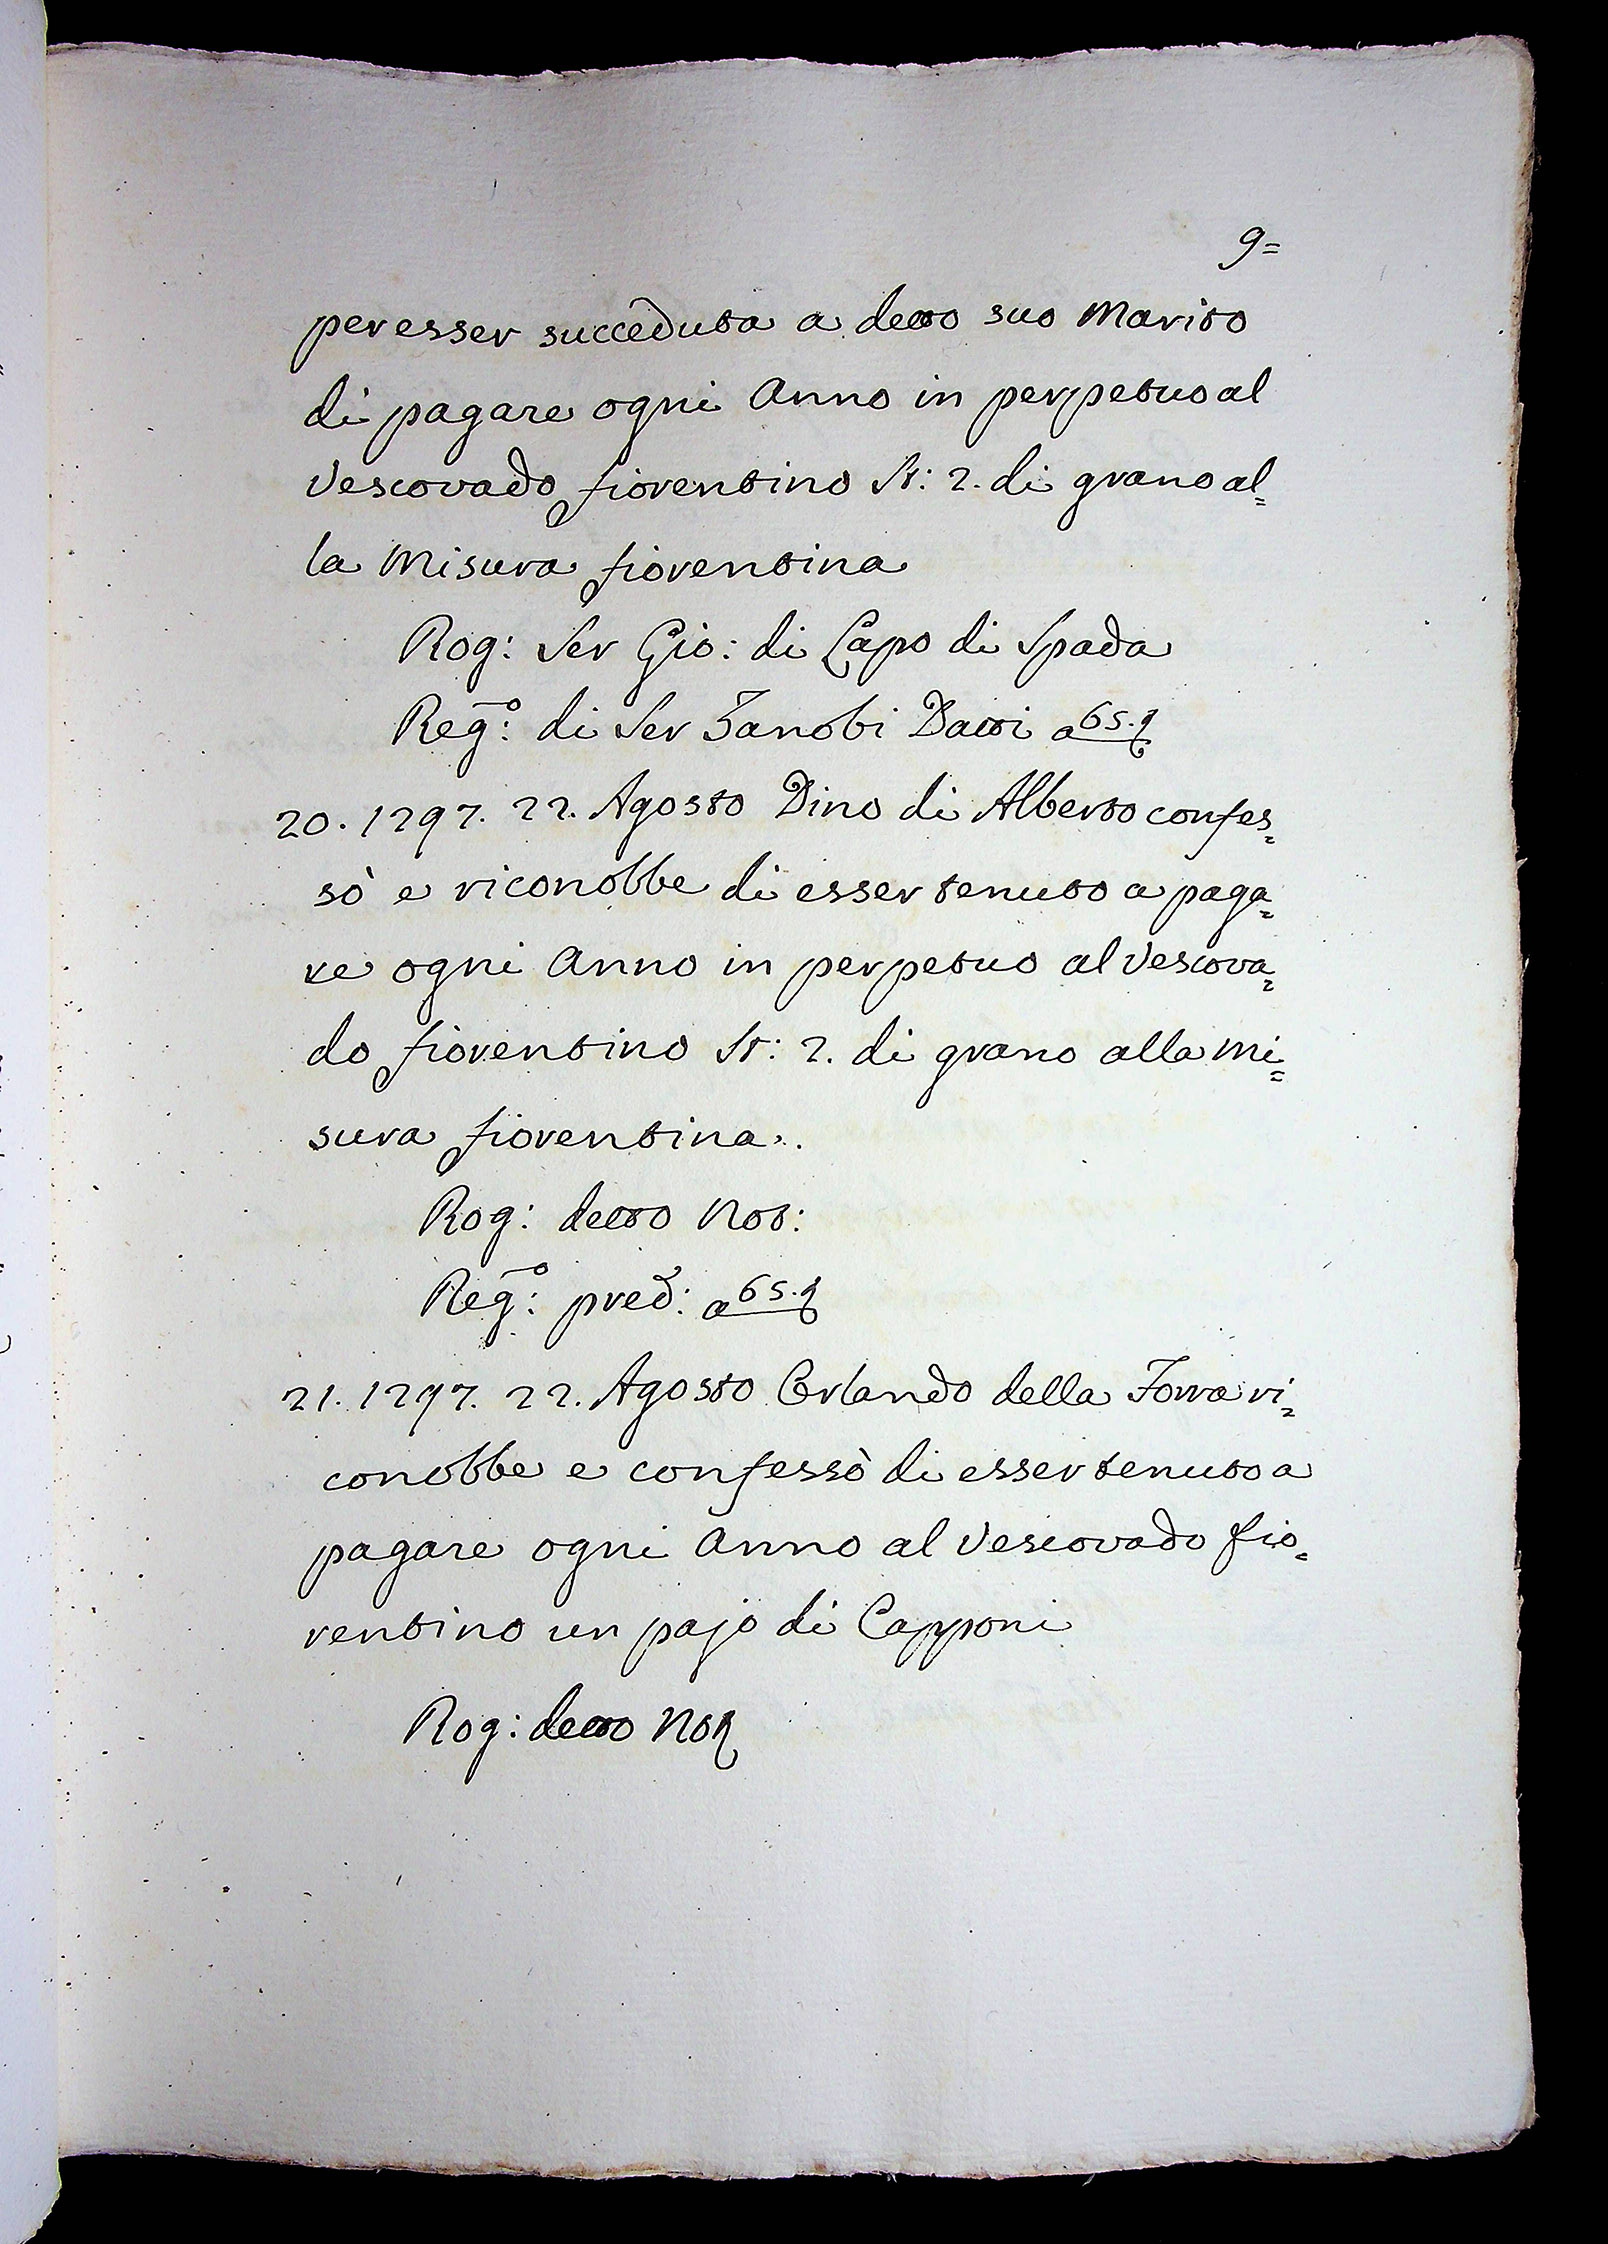 9=
per esser succeduta a detto suo Marito
di pagare ogni Anno in perpetuo al
Vescovado fiorentino St: 2. di grano al=
la Misura fiorentina
Rog: Ser Gio: di Lapo di Spada
Reg:o di Ser Zanobi Datti a 65.
20. 1297. 22. Agosto Dino di Alberto confes=
sò e riconobbe di esser tenuto a paga=
re ogni Anno in perpetuo al Vescova=
do fiorentino St: 2. di grano alla Mi=
sura fiorentina.
Rog: detto Not:
Reg:o pred: a 65.
21. 1297. 22. Agosto Orlando della Torra ri=
conobbe e confessò di esser tenuto a
pagare ogni Anno al Vescovado fio=
rentino un pajo di Capponi
Rog: detto Not